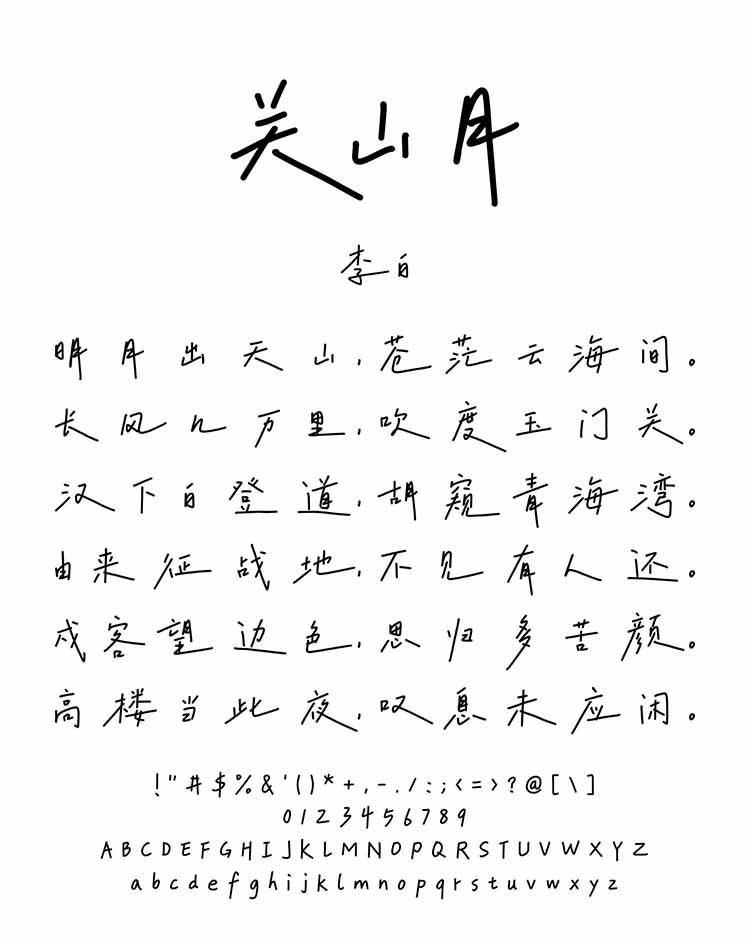 关山月
李白
明月出天山,苍茫云海间。
长风几万里,吹度玉门关。
汉下白登道,胡窥青海湾。
由来征战地,不见有人还。
戍客望边色,思归多苦颜。
高楼当此夜,叹息未应闲。
!"#$%&'()*+,-./:;<=>?@[\]
0123456789
ABCDEFGHIJKLMNOPQRSTUVWXYZ
abcdefghijklmnopqrstuvwxyz